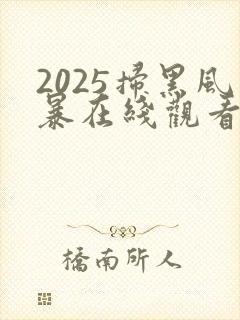 2025掃黑風
暴在綫觀看
橋南所人